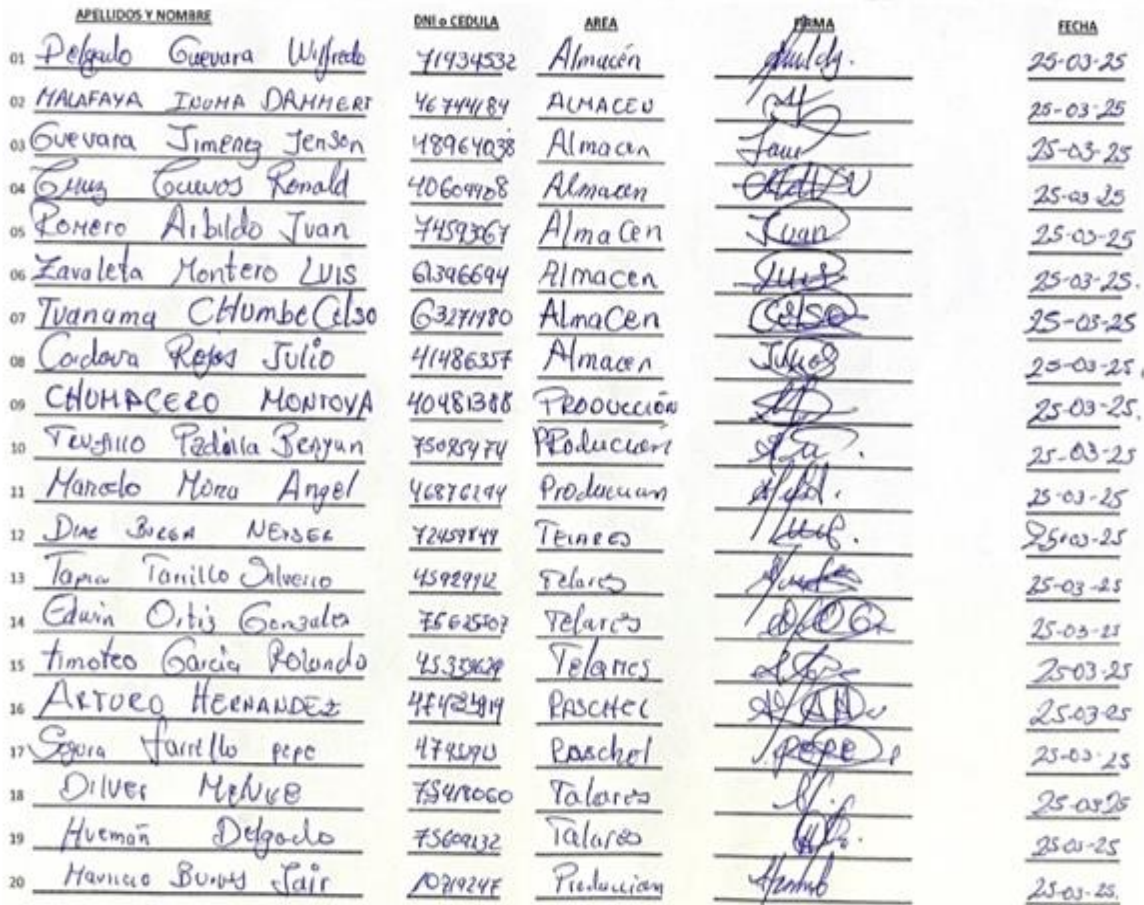 APELLIDOS Y NOMBRE DNI o CEDULA AREA FIRMA FECHA
01 Delgado Guevara Wilfredo 71934532 Almacén 25-03-25
02 MALAFAYA INUMA DAMMERT 46744184 ALMACEN 25-03-25
03 Guevara Jimenez Jenson 48964038 Almacen 25-03-25
04 Cruz Cuevos Ronald Almacen 25-03-25
05 Romero Arbildo Juan 74593067 AlmaCen Juan 25-03-25
06 Zavaleta Montero LUIS 61396694 Almacen Luis 25-03-25.
07 Tuanama CHumbe Celso 63271980 AlmaCen Celso 25-03-25
08 Cordova Rojas Julio 41486357 Almacen Julio 25-03-25.
09 CHUMACERO MONTOYA 40481388 PRODUCCIÓN 25-03-25.
10 Padilla PRoduccion 25-03-25
11 Marcelo Mora Angel Produccion 25-03-25
12 DIAZ 72459849 TELARES 25-03-25
13 Tapia Silverio Telares 25-03-25
14 Edwin Ortiz Gonzales Telares 25-03-25
15 timoteo Garcia Rolando Telares 25-03-25
16 ARTURO HERNANDEZ RASCHEL 25-03-25
17 Segura pepe Raschel PEPE 25-03-25
18 DILVER 75418060 Talares 25-03-25
19 Huemán Delgado 75609132 Talares 25-03-25
20 Jair Produccion 25-03-25.